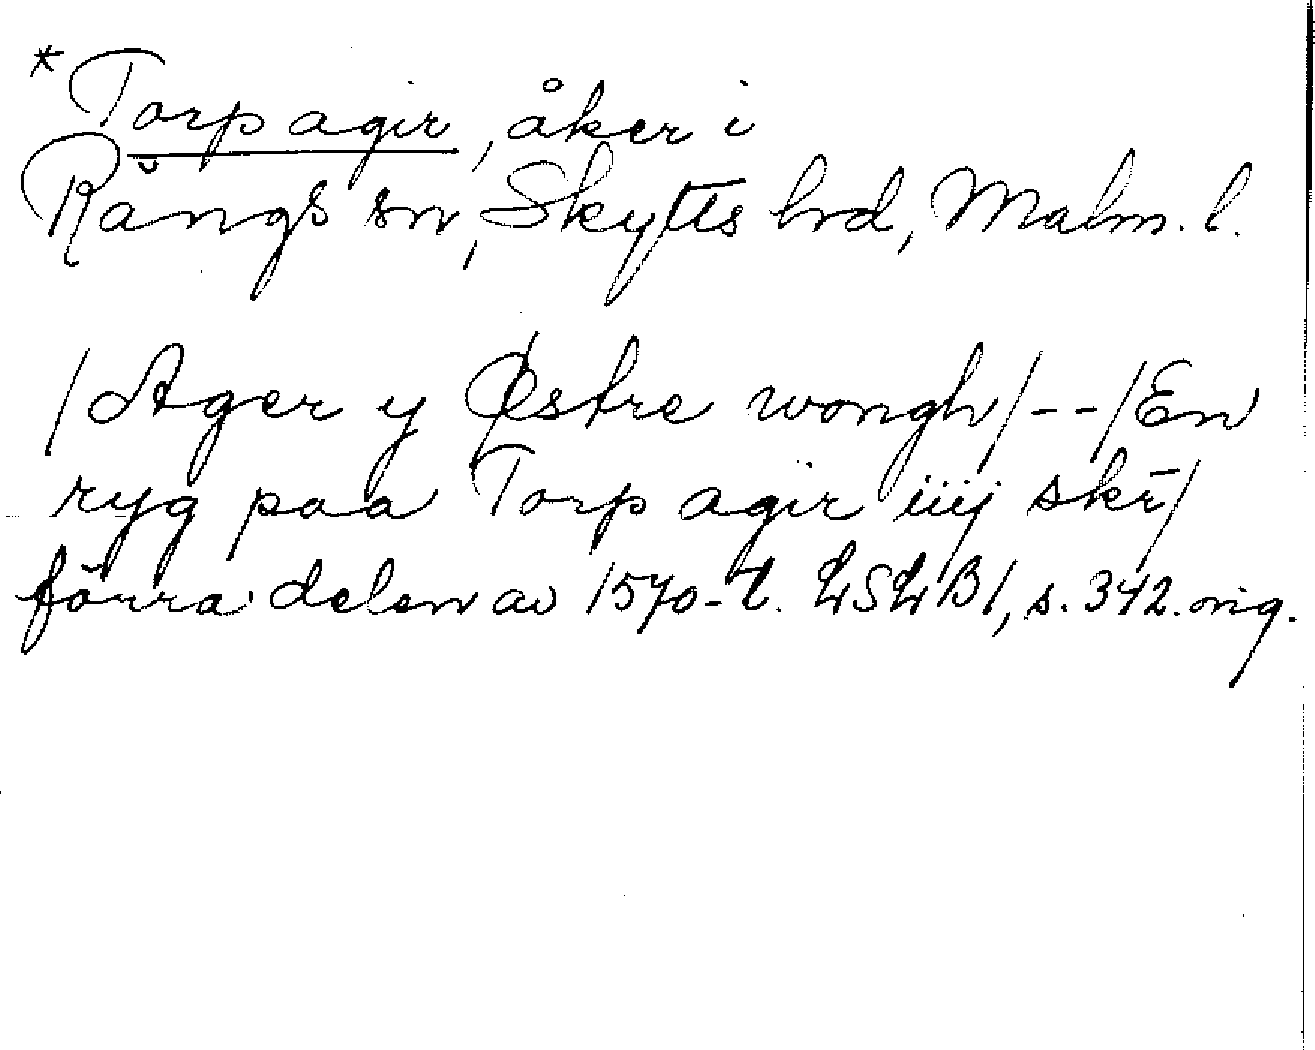 *Torp agir, åker i
Rängs sn, Skytts hrd, Malm. l.
/Ager y Østre wongh/--/En
ryg paa Torp agir iiij skr̄/
förra delen av 1570-t. LSLB1, s. 342. orig.